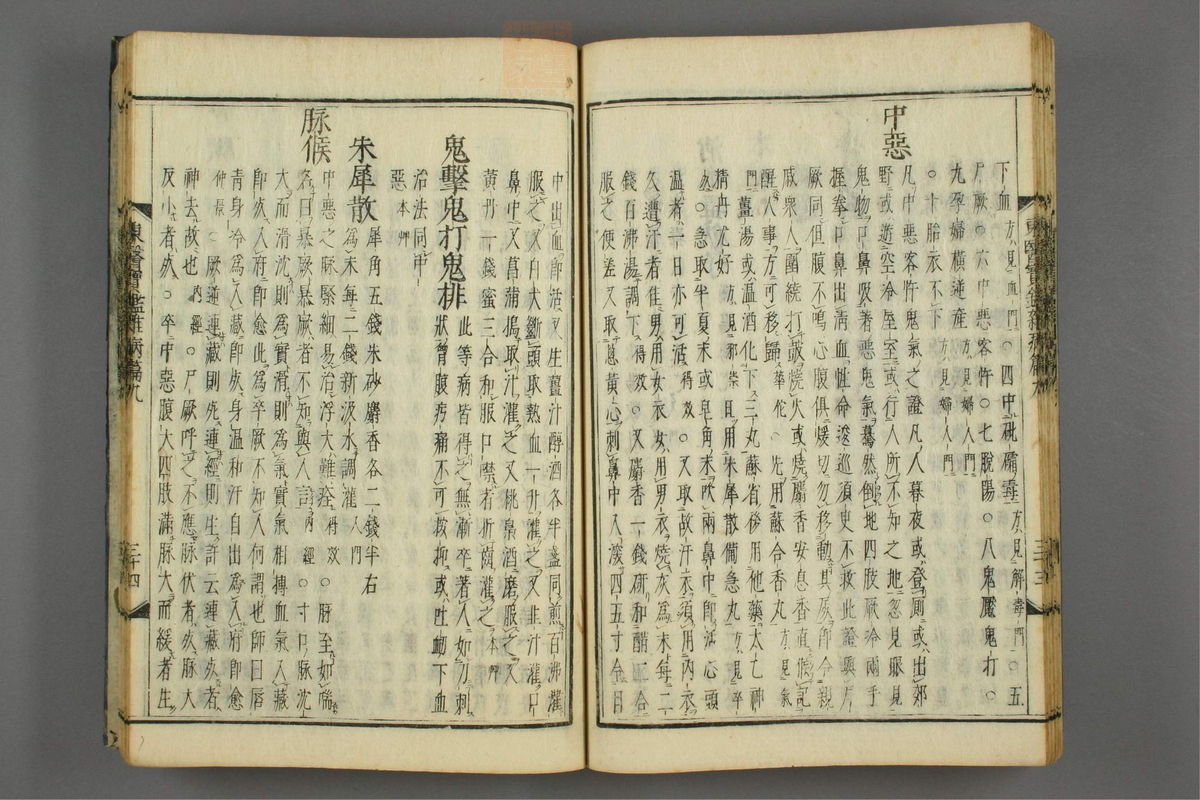 下血 方見血門 ○四中砒礵毒 方見解毒門 ○五
尸厥○六中惡客忤○七脫陽○八鬼魘鬼打○
九孕婦橫逆産 方見婦人門
○十胎衣不下 方見婦人門
中惡
凡中惡客忤鬼氣之證凡人暮夜或登厠或出郊
野或遊空冷屋室或行人所不知之地忽見眼見
鬼物口鼻吸著惡鬼氣驀然倒地四肢厥冷兩手
握拳口鼻出淸血性命逡巡須臾不救此證與尸
厥同但腹不鳴心腹俱煖切勿移動其尸卽令親
戚衆人圍繞打皷燒火或燒麝香安息香直候記
醒人事方可移歸 華佗 ○先用蘇合香丸 方見氣
門 薑湯或溫酒化下三丸蘇省後用他藥太乙神
精丹尤好 方見邪祟 且用朱犀散備急丸 方見卒
死 ○急取半夏末或皂角末吹兩鼻中卽活心頭
溫者一日亦可活 得效 ○又取故汗衣須用內衣
久遭汗者佳男用女衣女用男衣燒灰爲末每二
錢百沸湯調下 得效 ○又麝香一錢硏和醋二合
服之便差又取葱黃心刺鼻中入深四五寸令目
東醫寶鑑雜病篇九
三十三
中出血卽活又生薑汁醇酒各半盞同煎百沸灌
服之又白犬斷頭取熱血一升灌之又韭汁灌口
鼻中又菖蒲搗取汁灌之又桃梟酒磨服之又
黃丹一錢蜜三合和服口噤者折齒灌之 本草
鬼擊鬼打鬼排
此等病皆得之無漸卒著人如刀刺
狀胷腹㽲痛不可按抑或吐衂下血
治法同中
惡 本草
朱犀散
犀角五錢朱砂麝香各二錢半右
爲末每二錢新汲水調灌 入門
脉候
中惡之脉緊細易治浮大難痊 得效 ○脉至如喘
名曰暴厥暴厥者不知與人言 內經 ○寸口脉沈
大而滑沈則爲實滑則爲氣實氣相搏血氣入藏
卽死入府卽愈此爲卒厥不知人何謂也師曰唇
靑身冷爲入藏卽死身溫和汗自出爲入府卽愈
仲景 ○厥逆連藏則死連經則生許云連藏死者
神去故也 內經 ○尸厥呼之不應脉伏者死脉大
反小者死○卒中惡腹大四肢滿脉大而緩者生
東醫寶鑑雜病篇九
三十四